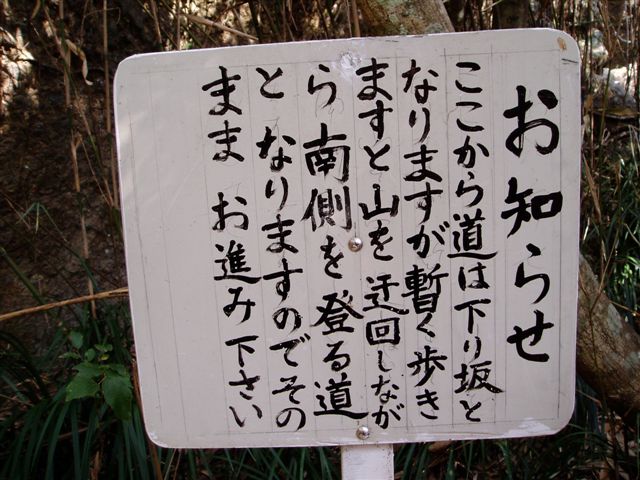 お知らせ
ここから道は下り坂と
なりますが暫く歩き
ますと山を迂回しなが
ら南側を登る道
となりますのでその
まま お進み下さい